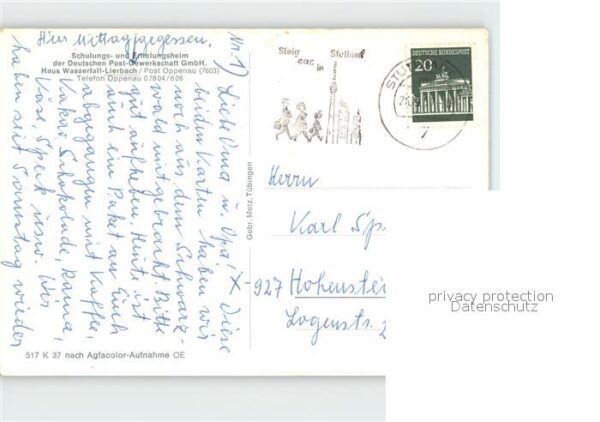 Hier Mittaggegessen.
Schulungs- und Erholungsheim
der Deutschen Post-Gewerkschaft GmbH.
Haus Wasserfall-Lierbach / Post Oppenau (7603)
Telefon Oppenau 07804/606
Nr. 1)
Liebe Oma u. Opa! X Diese
beiden Karten haben wir
noch aus dem Schwarz-
wald mitgebracht. Bitte
gut aufheben. Heute ist
auch ein Paket an Euch
abgegangen mit Kaffee,
Kakao, Schokolade, Rama,
Käse, Speck usw. Wir
haben seit Sonntag wieder
517 K 37 nach Agfacolor-Aufnahme OE
Gebr. Metz, Tübingen
Steig
aus in
Stuttgart
DEUTSCHE BUNDESPOST
20
7
Herrn
Karl Sp
X-927 Hohenstei
Logenstr. 2
privacy protection
Datenschutz